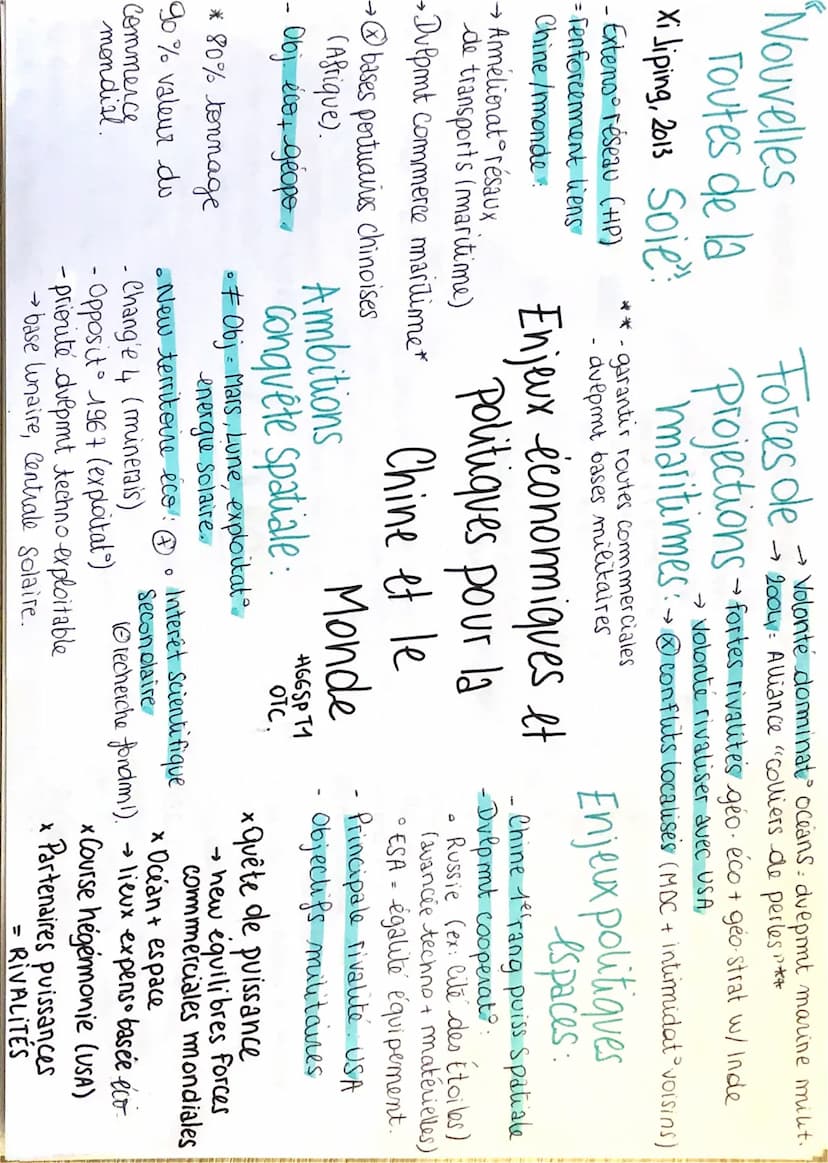 "Nouvelles
routes de la
Soie":
Xi Jiping, 2013
- Extens° réseau (+HP)
= renforcement liens
Chine/monde.
→ Améliorat° résaux
de transports (maritime)
→ Dvlpmt commerce maritime*
→ ⊗ bases portuaires chinoises
(Afrique).
- Obj éco + géopo.
* 80% tonnage
90% valeur du
commerce
mondial.
Forces de
Projections
maritimes:
→ Volonté dominat° océans: dvlpmt marine milit.
→ 2004 = Alliance "colliers de perles"**
→ fortes rivalités géo. éco + géo. strat w/ Inde
→ volonté rivaliser avec USA
→ ⊗ conflits localisés (MDC + intimidat° voisins)
** - garantir routes commerciales
- dvlpmt bases militaires
Enjeux économiques et
politiques pour la
Chine et le
Monde
HGGSP T1
OTC,
Ambitions
conquête spatiale:
° ≠ Obj = Mars, Lune, exploitat°
énergie solaire.
° New territoire éco: ⊕
- Chang'e 4 (minerais)
- Opposit° 1967 (exploitat°)
- priorité dvlpmt techno exploitable
→ base lunaire, centrale solaire.
° Intérêt scientifique
secondaire
(⊖ recherche fondml).
Enjeux politiques
espaces:
- Chine 1er rang puiss spatiale
- Dvlpmt coopérat°:
° Russie (ex: Cité des Étoiles)
(avancée techno + matérielles)
° ESA = égalité équipement.
- Principale rivalité: USA
- Objectifs militaires
x Quête de puissance
→ new équilibres forces
commerciales mondiales
x Océan + espace
→ lieux expens° basée éco
x Course hégémonie (USA)
x Partenaires puissances
= RIVALITÉS